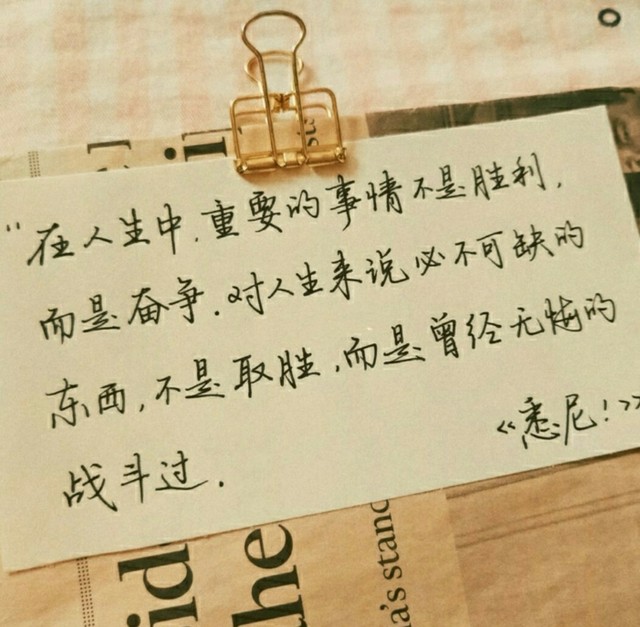 “在人生中,重要的事情不是胜利,
而是奋争.对人生来说必不可缺的
东西,不是取胜,而是曾经无悔的
战斗过.
《悉尼!》
id
the
a's stanc